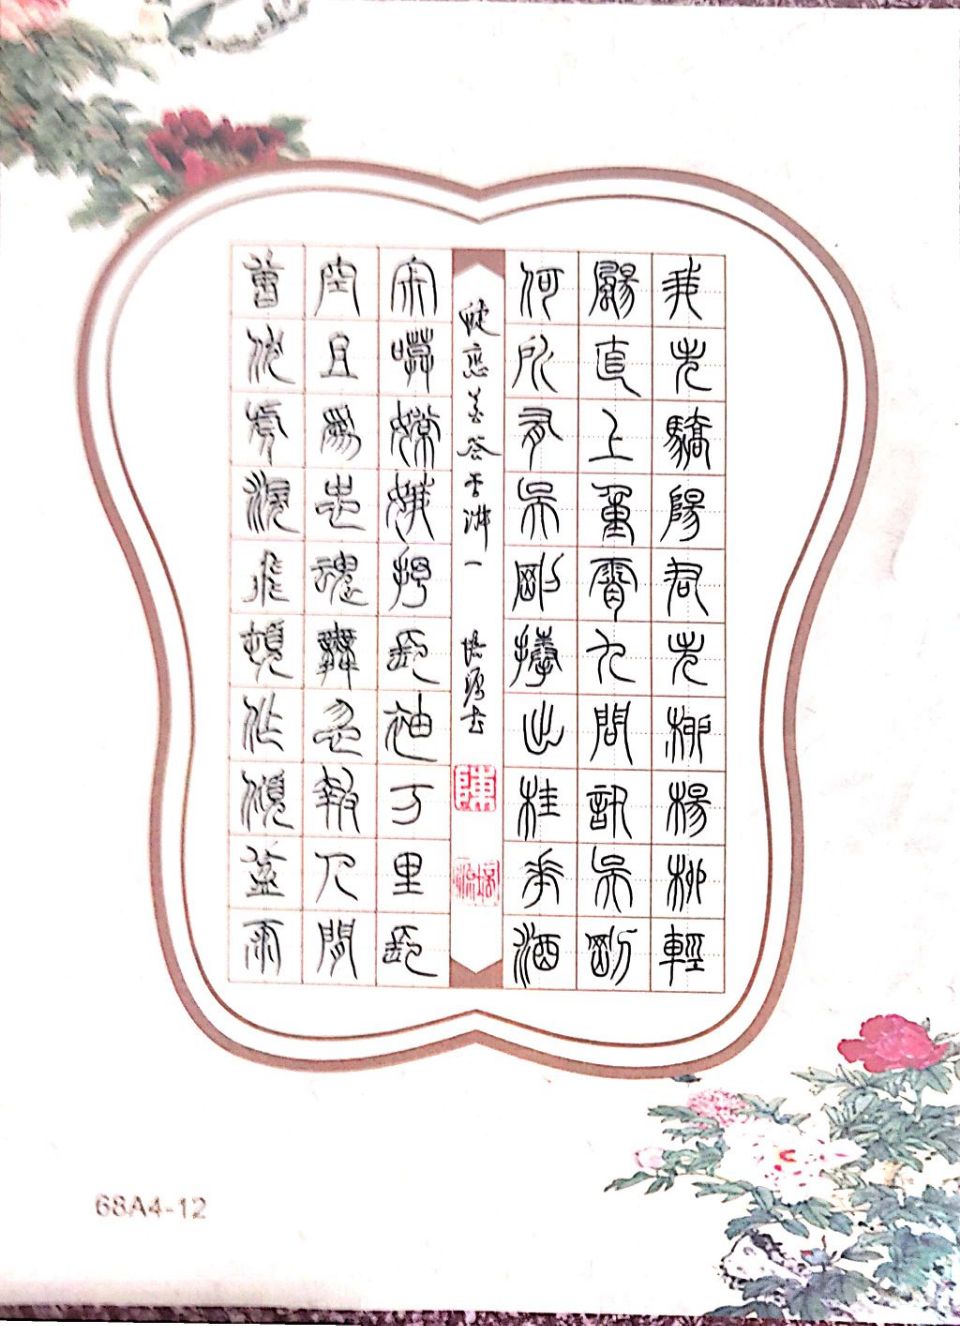 我失驕陽君失柳楊柳輕
颺直上重霄九問訊吳剛
何所有吳剛捧出桂花酒
蝶恋花答李淑一 培源书
陳
培源
寂寞嫦娥抒長袖万里長
空且為忠魂舞忽報人間
曾伏虎淚飛頓作傾盆雨
68A4-12